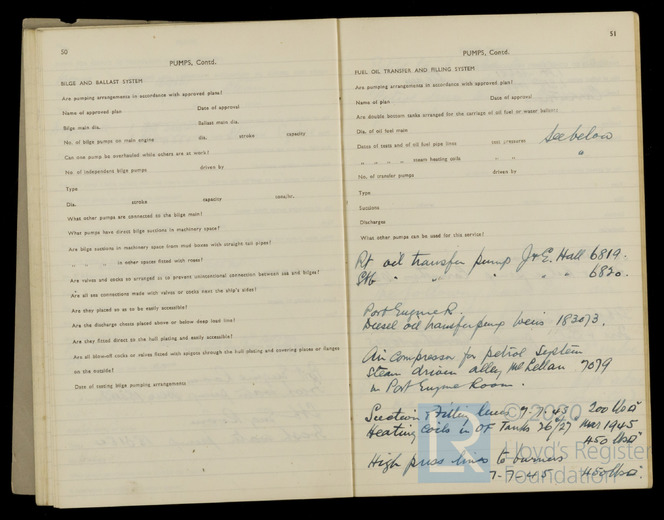 50
PUMPS, Contd.
BILGE AND BALLAST SYSTEM
Are pumping arrangements in accordance with approved plans?
Name of approved plan Date of approval
Bilge main dia. Ballast main dia.
No. of bilge pumps on main engine dia. stroke capacity
Can one pump be overhauled while others are at work?
No. of independent bilge pumps driven by
Type
Dia. stroke capacity tons/hr.
What other pumps are connected to the bilge main?
What pumps have direct bilge suctions in machinery space?
Are bilge suctions in machinery space from mud boxes with straight tail pipes?
" " " in other spaces fitted with roses?
Are valves and cocks so arranged as to prevent unintentional connection between sea and bilges?
Are all sea connections made with valves or cocks next the ship's sides?
Are they placed so as to be easily accessible?
Are the discharge chests placed above or below deep load line?
Are they fitted direct to the hull plating and easily accessible?
Are all blow-off cocks or valves fitted with spigots through the hull plating and covering plates or flanges
on the outside?
Date of testing bilge pumping arrangements
51
PUMPS, Contd.
FUEL OIL TRANSFER AND FILLING SYSTEM
Are pumping arrangements in accordance with approved plans?
Name of plan Date of approval
Are double bottom tanks arranged for the carriage of oil fuel or water ballast?
Dia. of oil fuel main
Dates of tests and of oil fuel pipe lines test pressures See below
" " " " steam heating coils " " "
No. of transfer pumps driven by
Type
Suctions
Discharges
What other pumps can be used for this service?
Pt oil transfer pump J & E. Hall 6819.
Stb " " " " " 6820.
Port Engine R.
Diesel oil transfer pump Weirs 183073.
Air compressor for petrol system
steam driven Alley McLellan 7079
in Port Engine Room.
Suction & filling lines 7-7-45 200 lbs
Heating coils in OF Tanks 26/27 Mar 1945
450 lbs
High press lines to burners
7-7-45 450 lbs
© 2020
LR
Lloyd's Register
Foundation